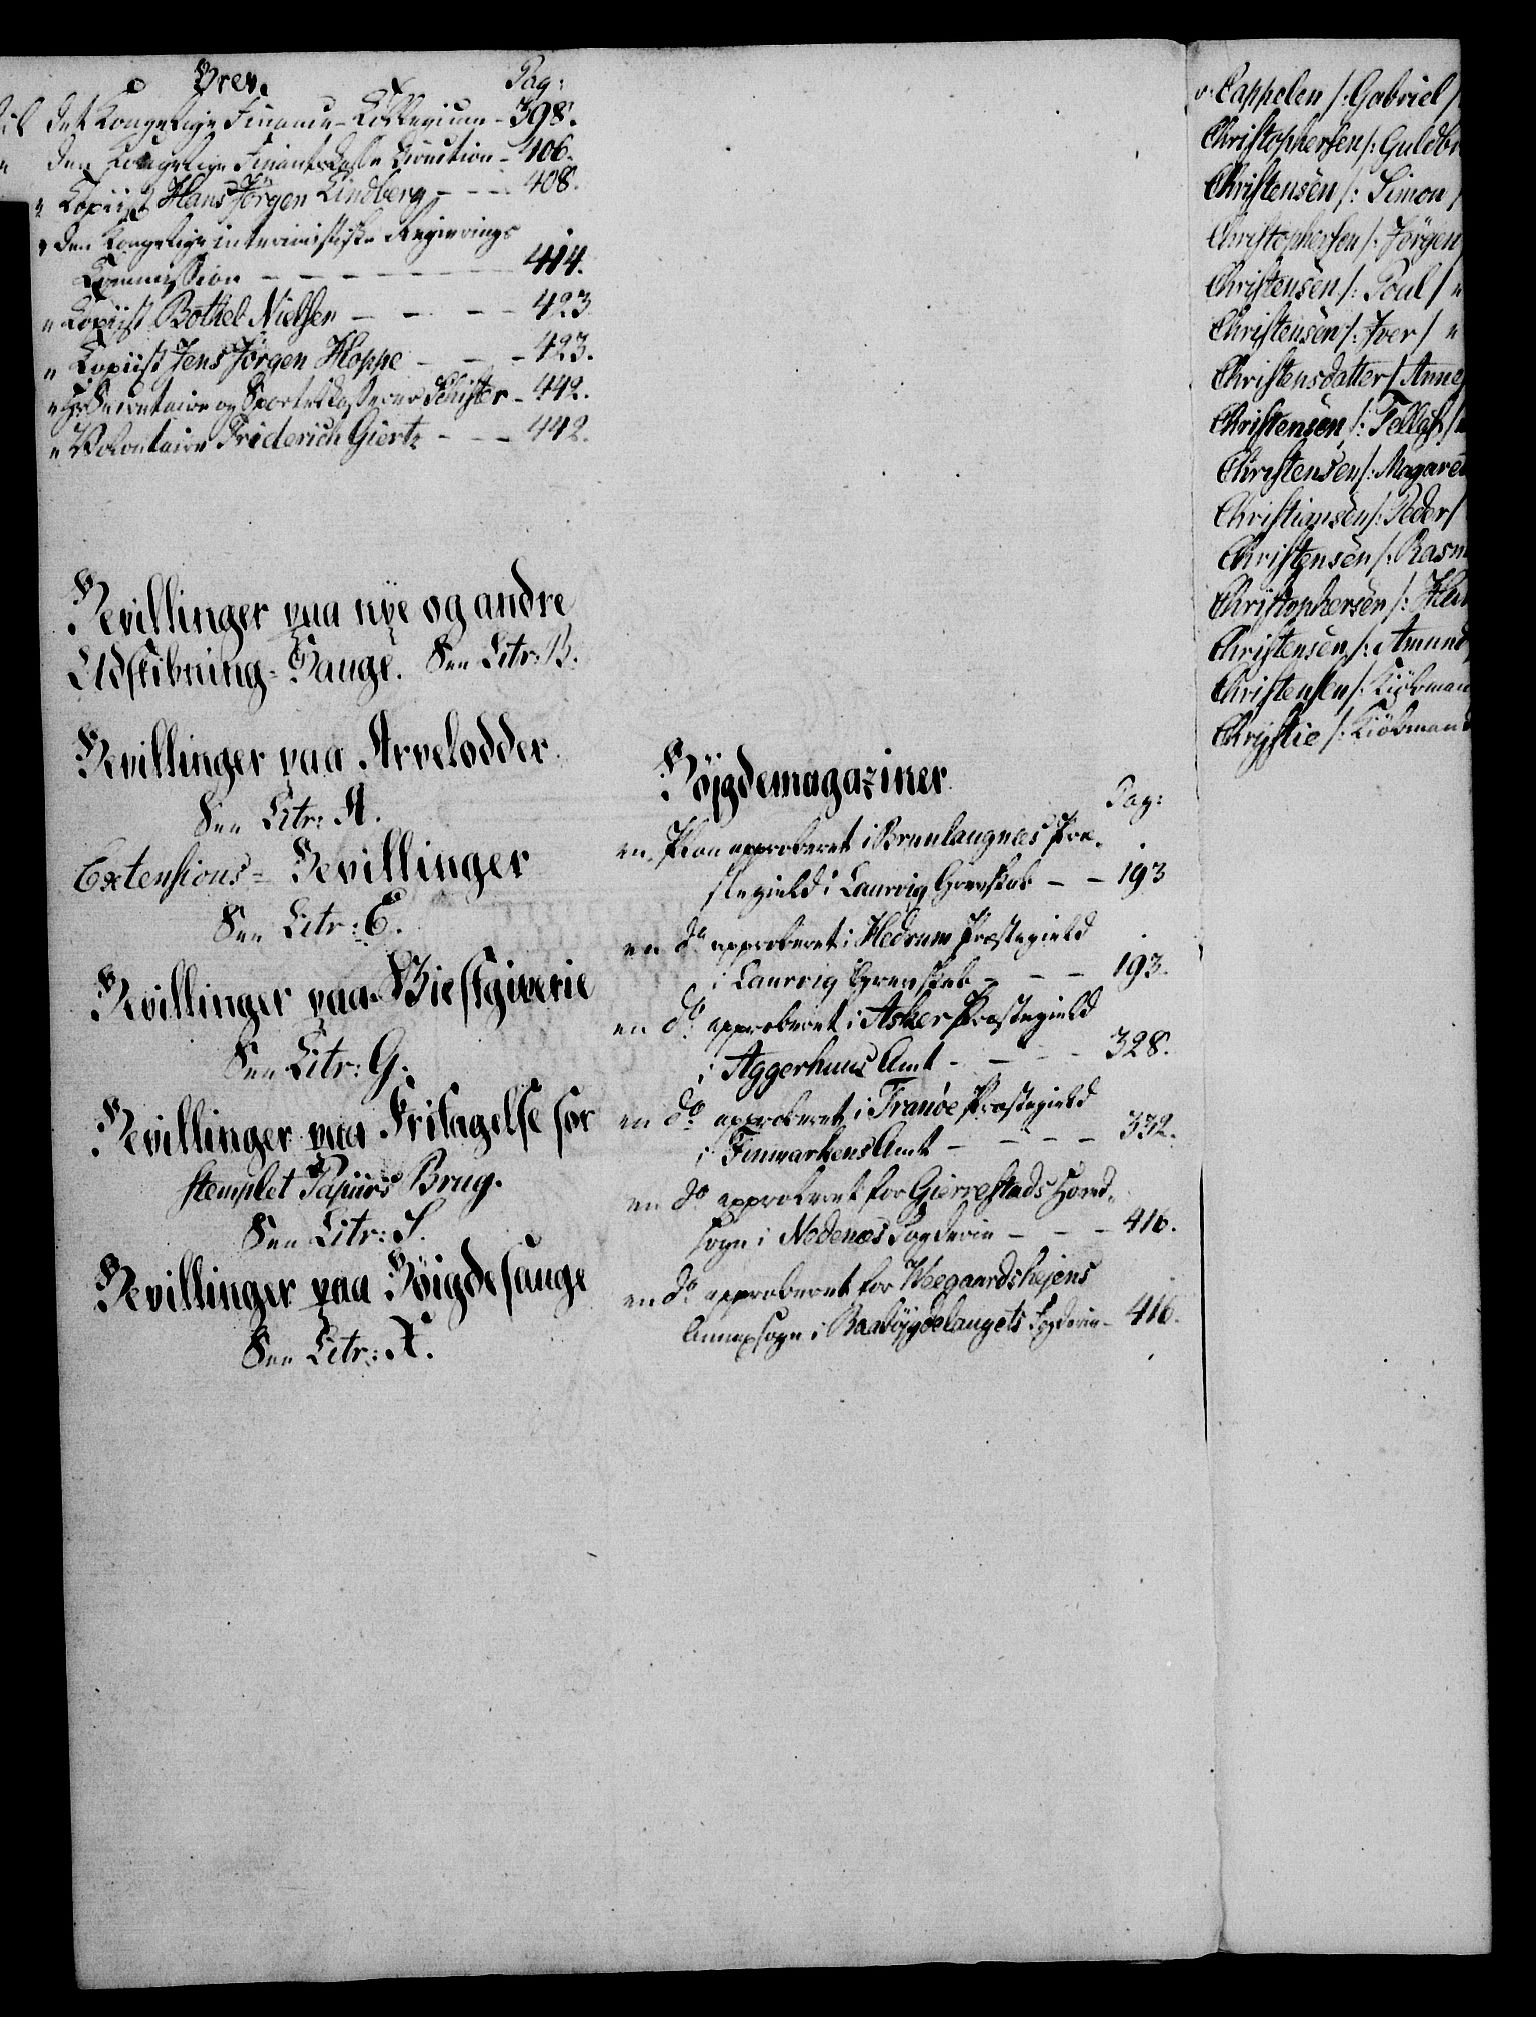 Brev.
Pag:
til det Kongelige Finance-Collegium - 398.
" den Kongelige Finantskasse Direction - 406.
" Kopiist Hans Jörgen Lindberg - - - 408.
" den Kongelige interimistiske Regierings
Commission - - - - - - - - 414.
" Kopiist Bothel Nielsen - - - - - 423.
" Kopiist Jens Jörgen Hoppe - - - 423.
" Secretaire og Sportelkasserer Schifter - 442.
" Volontaire Friderich Giertz - - - 442.
Bevillinger paa nÿe og andre
Udskibning-Sauge. See Litr: B.
Bevillinger paa Arvelodder.
See Litr: A.
Extensions-Bevillinger
See Litr: E.
Bevillinger paa Giestgiverie
See Litr: G.
Bevillinger paa Fritagelse for
stemplet Papiirs Brug.
See Litr: S.
Bevillinger paa Böigdesauge
See Litr: X.
Böjgdemagaziner
Pag:
en Plan approberet i Brunlaugnæs Præ-
stegield i Laurvig Grevskab - - 193
en do approberet i Hedrum Præstegield
i Laurvig Grevskab - - - 193.
en do approberet i Asker Præstegield
i Aggerhuus Amt - - - - 328.
en do approberet i Tranöe Præstegield
i Finmarkens Amt - - - - 332.
en do approberet for Gierrestads Hoved-
sogn i Nedenæs Fogderie - - - 416.
en do approberet for Weegaardshejens
Annexsogn i Raabÿgdelaugets Fogderie - 416.
v: Cappelen /: Gabriel /
Christophersen /: Guldbr
Christensen /: Simon /
Christophersen /: Jörgen
Christensen /: Poul / "
Christensen /: Iver / "
Christensdatter / Anne
Christensen /: Tellef / "
Christensen /: Magaret
Christiansen /: Peder /
Christensen /: Rasm
Christophersen /: Ha
Christensen /: Amund
Christensen /: Kiöbman
Christie /: Kiöbmand